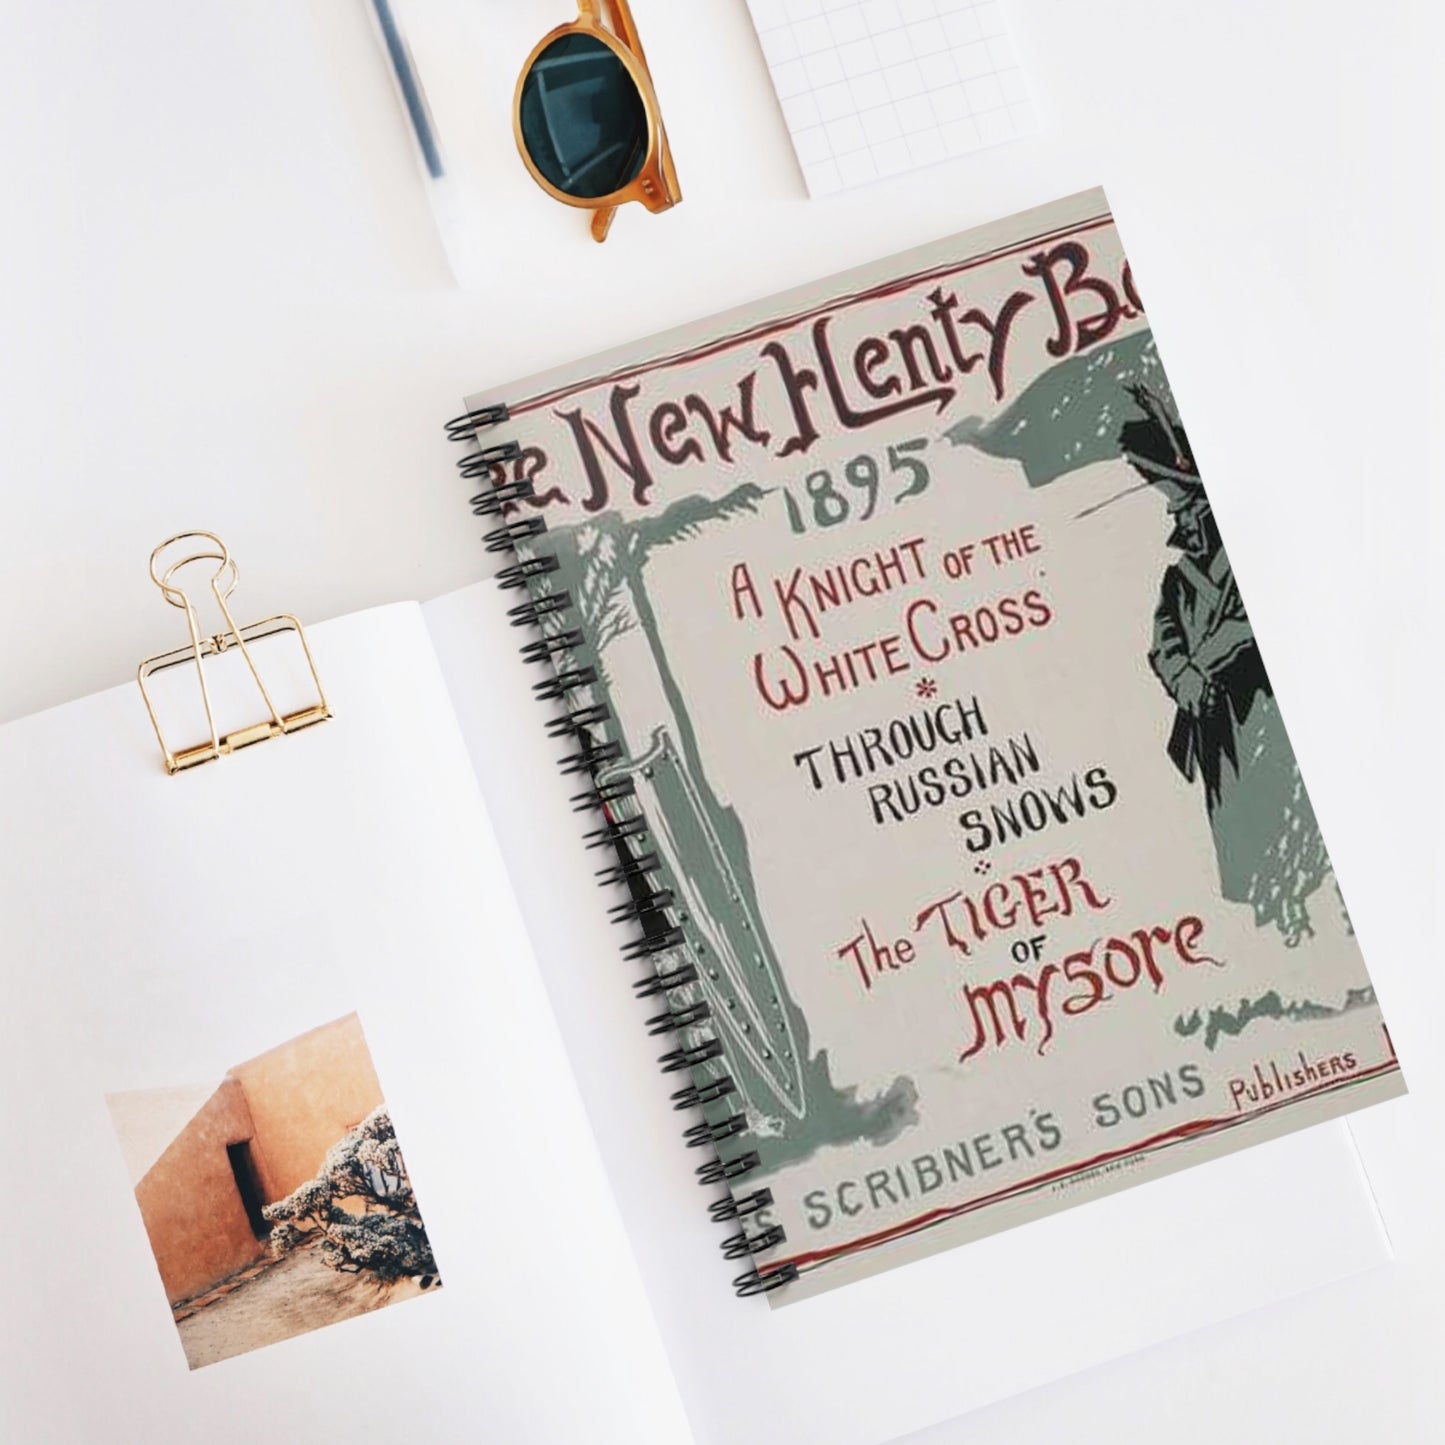 e New Henty Bo
1895
A KNIGHT OF THE
WHITE CROSS.
*
THROUGH
RUSSIAN
SNOWS
The TIGER
OF
mysore
ES SCRIBNER'S SONS Publishers